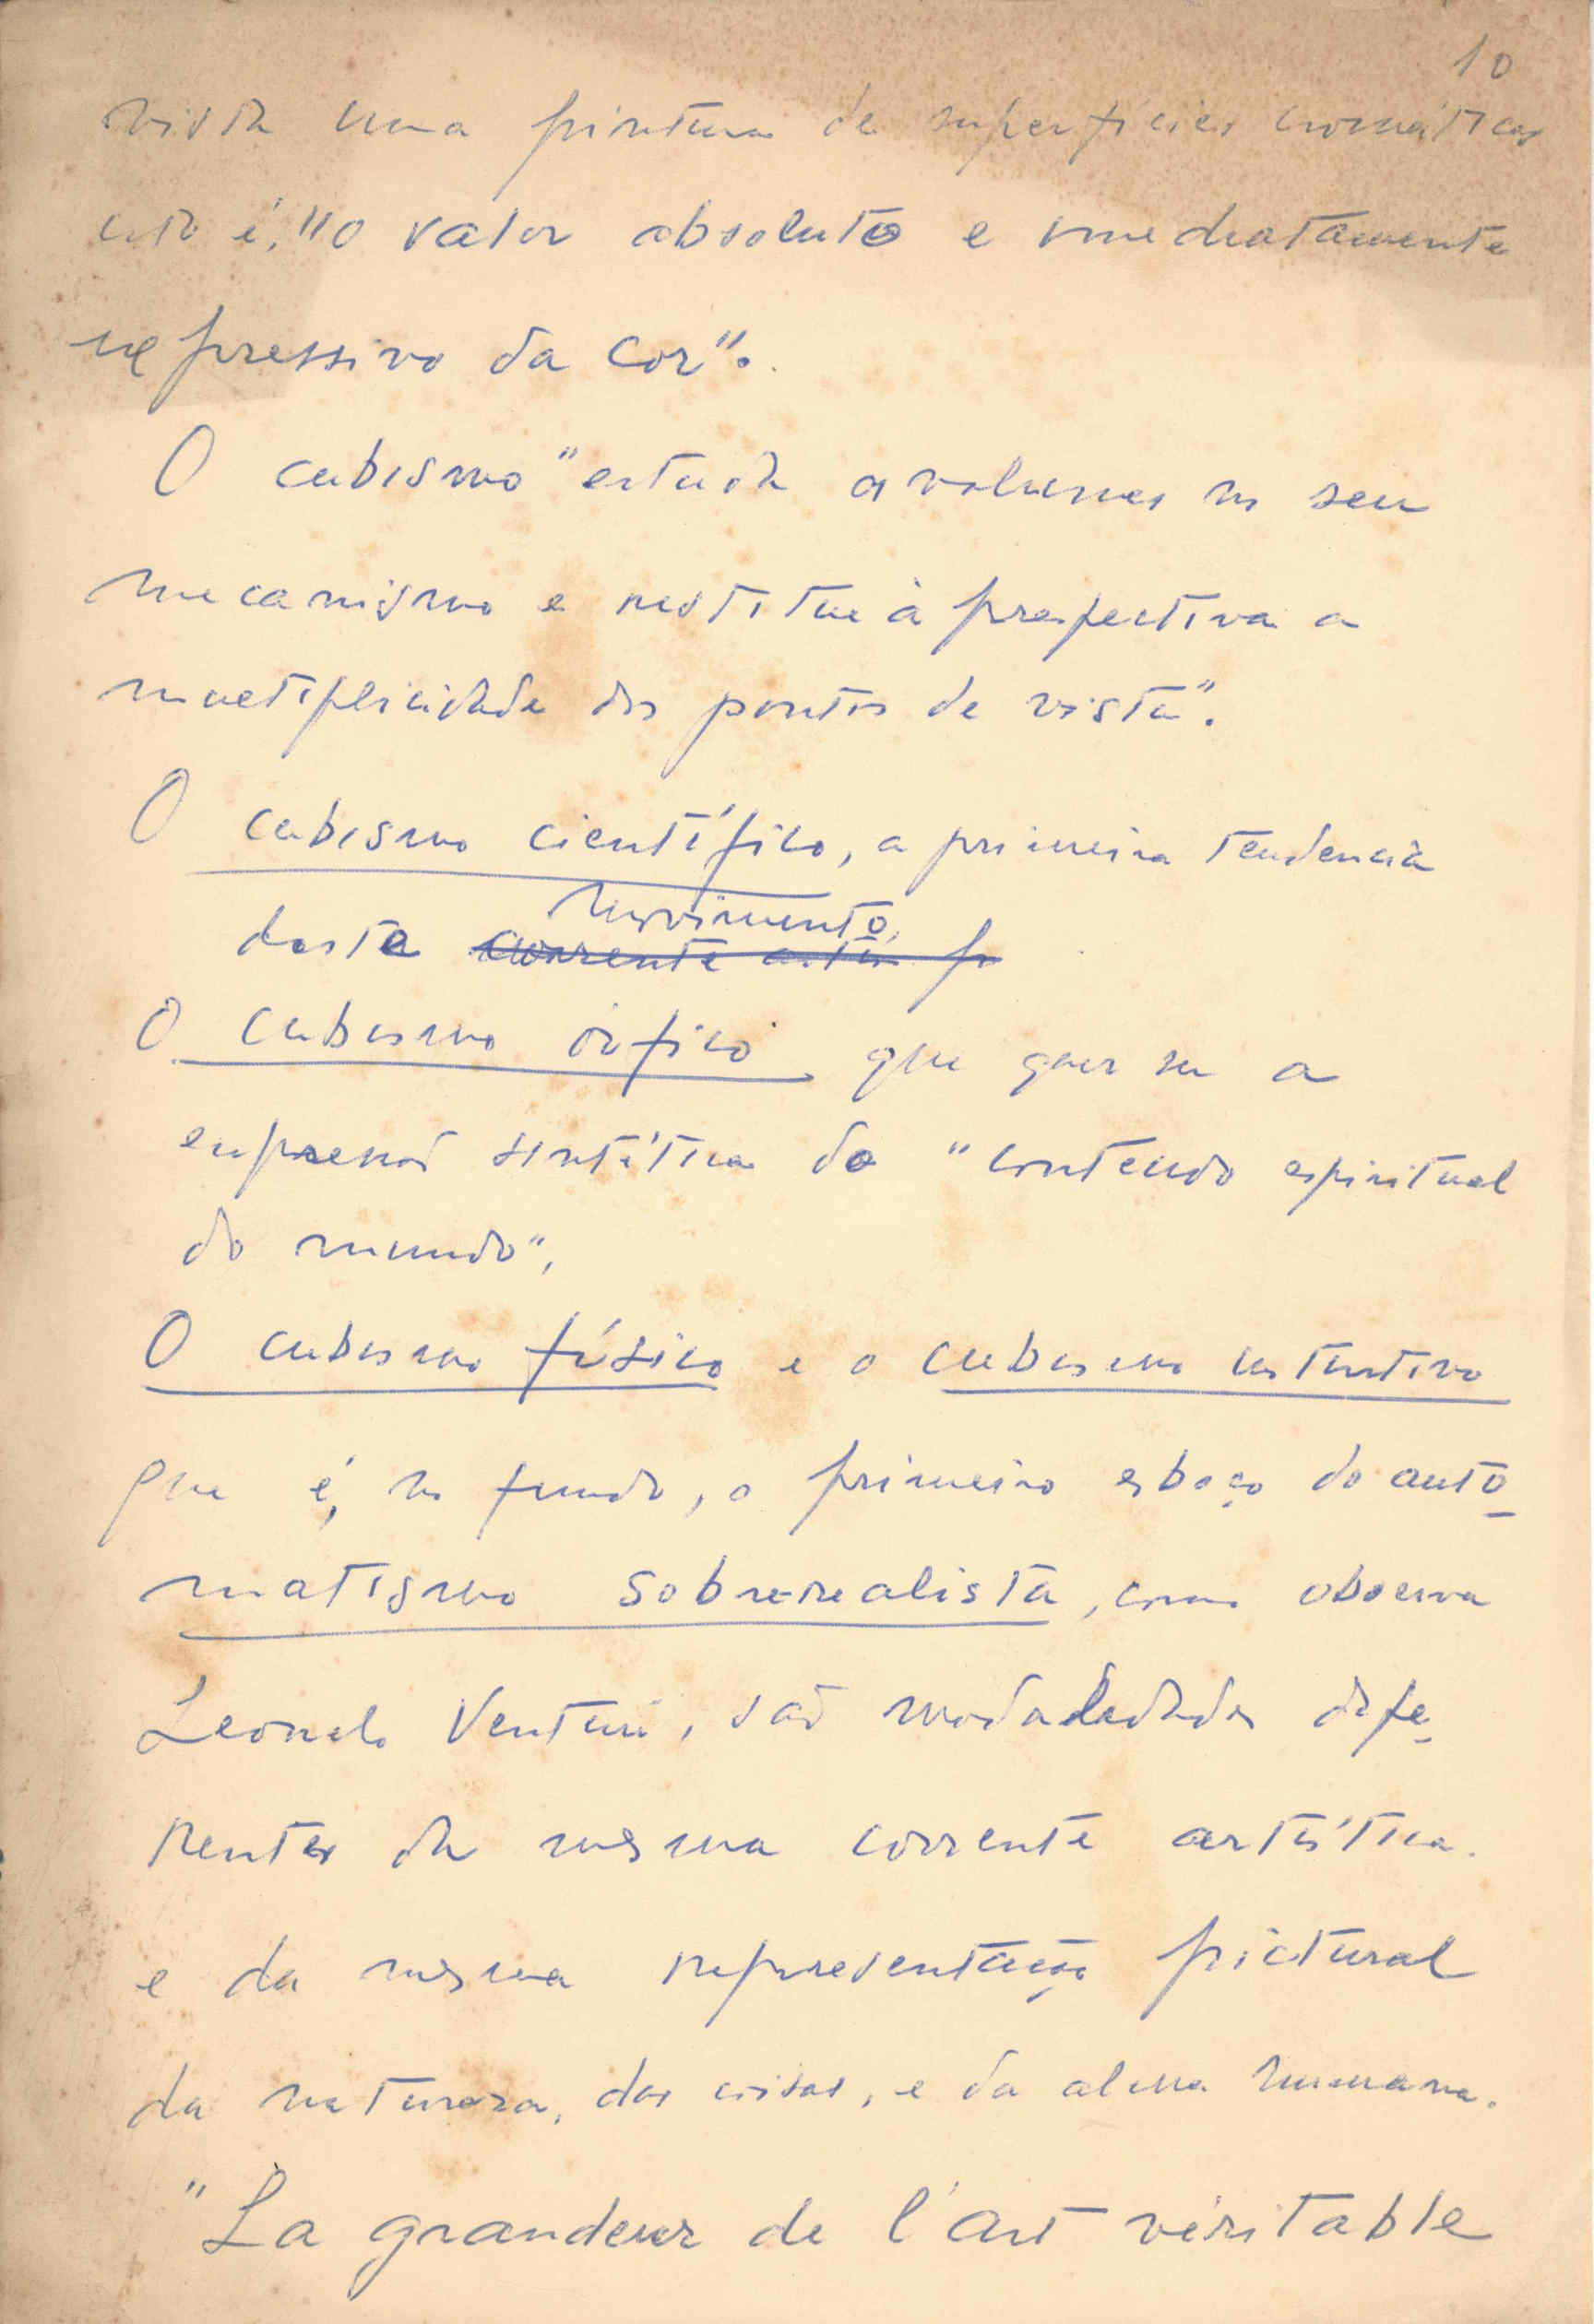 10
vista uma pintura de superfícies cromáticas
isto é, "o valor absoluto e imediatamente
expressivo da cor".
O cubismo "estuda os volumes no seu
mecanismo e restitue à prespectiva a
multiplicidade dos pontos de vista".
O cubismo científico, a primeira tendencia
movimento,
deste corrente artís p
O cubismo órfico que quer ser a
expressão sintética do "conteudo espiritual
do mundo",
O cubismo físico e o cubismo instintivo
que é, no fundo, o primeiro esboço do auto-
matismo sobre-realista, como observa
Leonelo Venturi, são modalidades dife-
rentes da mesma corrente artística.
e da mesma representação pictural
da natureza, das coisas, e da alma humana.
"La grandeur de l'art véritable